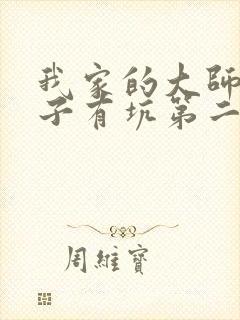 我家的大師
子有坑第二
周維寶